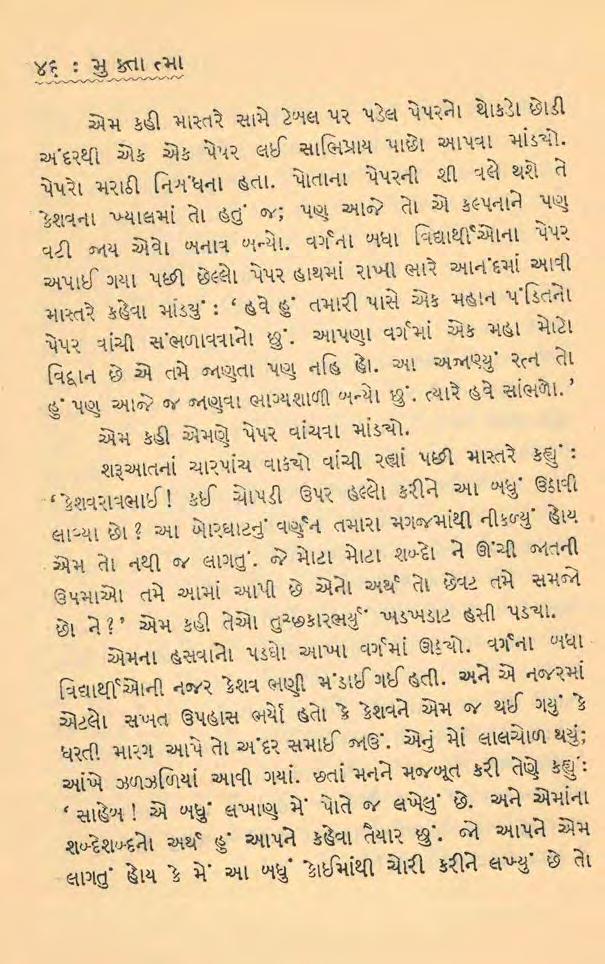 ૪૬ : મુ ક્તા ત્મા
એમ કહી માસ્તરે સામે ટેબલ પર પડેલ પેપરનો થોકડો છોડી
અંદરથી એક એક પેપર લઈ સાભિપ્રાય પાછો આપવા માંડ્યો.
પેપરો મરાઠી નિબંધના હતા. પોતાના પેપરની શી વલે થશે તે
કેશવના ખ્યાલમાં તો હતું જ; પણ આજે તો એ કલ્પનાને પણ
વટી જાય એવો બનાવ બન્યો. વર્ગના બધા વિદ્યાર્થીઓના પેપર
અપાઈ ગયા પછી છેલ્લો પેપર હાથમાં રાખી ભારે આનંદમાં આવી
માસ્તરે કહેવા માંડયું : ‘ હવે હું તમારી પાસે એક મહાન પંડિતનો
પેપર વાંચી સંભળાવવાનો છું. આપણા વર્ગમાં એક મહા મોટો
વિદ્વાન છે એ તમે જાણતા પણ નહિ હો. આ અજાણ્યું રત્ન તો
હું પણ આજે જ જાણવા ભાગ્યશાળી બન્યો છું. ત્યારે હવે સાંભળો. ’
એમ કહી એમણે પેપર વાંચવા માંડ્યો.
શરૂઆતનાં ચારપાંચ વાક્યો વાંચી રહ્યાં પછી માસ્તરે કહ્યું :
‘ કેશવરાવભાઈ ! કઈ ચોપડી ઉપર હલ્લો કરીને આ બધું ઉઠાવી
લાવ્યા છો ? આ બોરઘાટનું વર્ણન તમારા મગજમાંથી નીકળ્યું હોય
એમ તો નથી જ લાગતું. જે મોટા મોટા શબ્દો ને ઊંચી જાતની
ઉપમાઓ તમે આમાં આપી છે એનો અર્થ તો છેવટ તમે સમજો
છો ને ? ’ એમ કહી તેઓ તુચ્છકારભર્યું ખડખડાટ હસી પડયા.
એમના હસવાનો પડઘો આખા વર્ગમાં ઊઠયો. વર્ગના બધા
વિદ્યાર્થીઓની નજર કેશવ ભણી મંડાઈ ગઈ હતી. અને એ નજરમાં
એટલો સખત ઉપહાસ ભર્યો હતો કે કેશવને એમ જ થઈ ગયું કે
ધરતી મારગ આપે તો અંદર સમાઈ જાઉં. એનું મોં લાલચોળ થયું;
આંખે ઝળઝળિયાં આવી ગયાં. છતાં મનને મજબૂત કરી તેણે કહ્યું :
‘ સાહેબ ! એ બધું લખાણ મેં પોતે જ લખેલું છે. અને એમાંના
શબ્દેશબ્દનો અર્થ હું આપને કહેવા તૈયાર છું. જો આપને એમ
લાગતું હોય કે મેં આ બધું કોઈમાંથી ચોરી કરીને લખ્યું છે તો